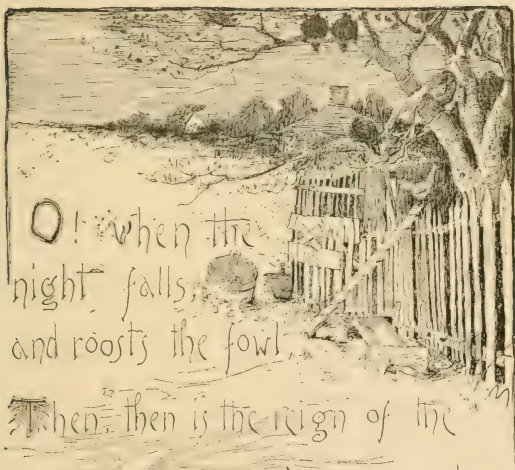 O! when the
night falls,
and roosts the fowl,
Then, then is the reign of the